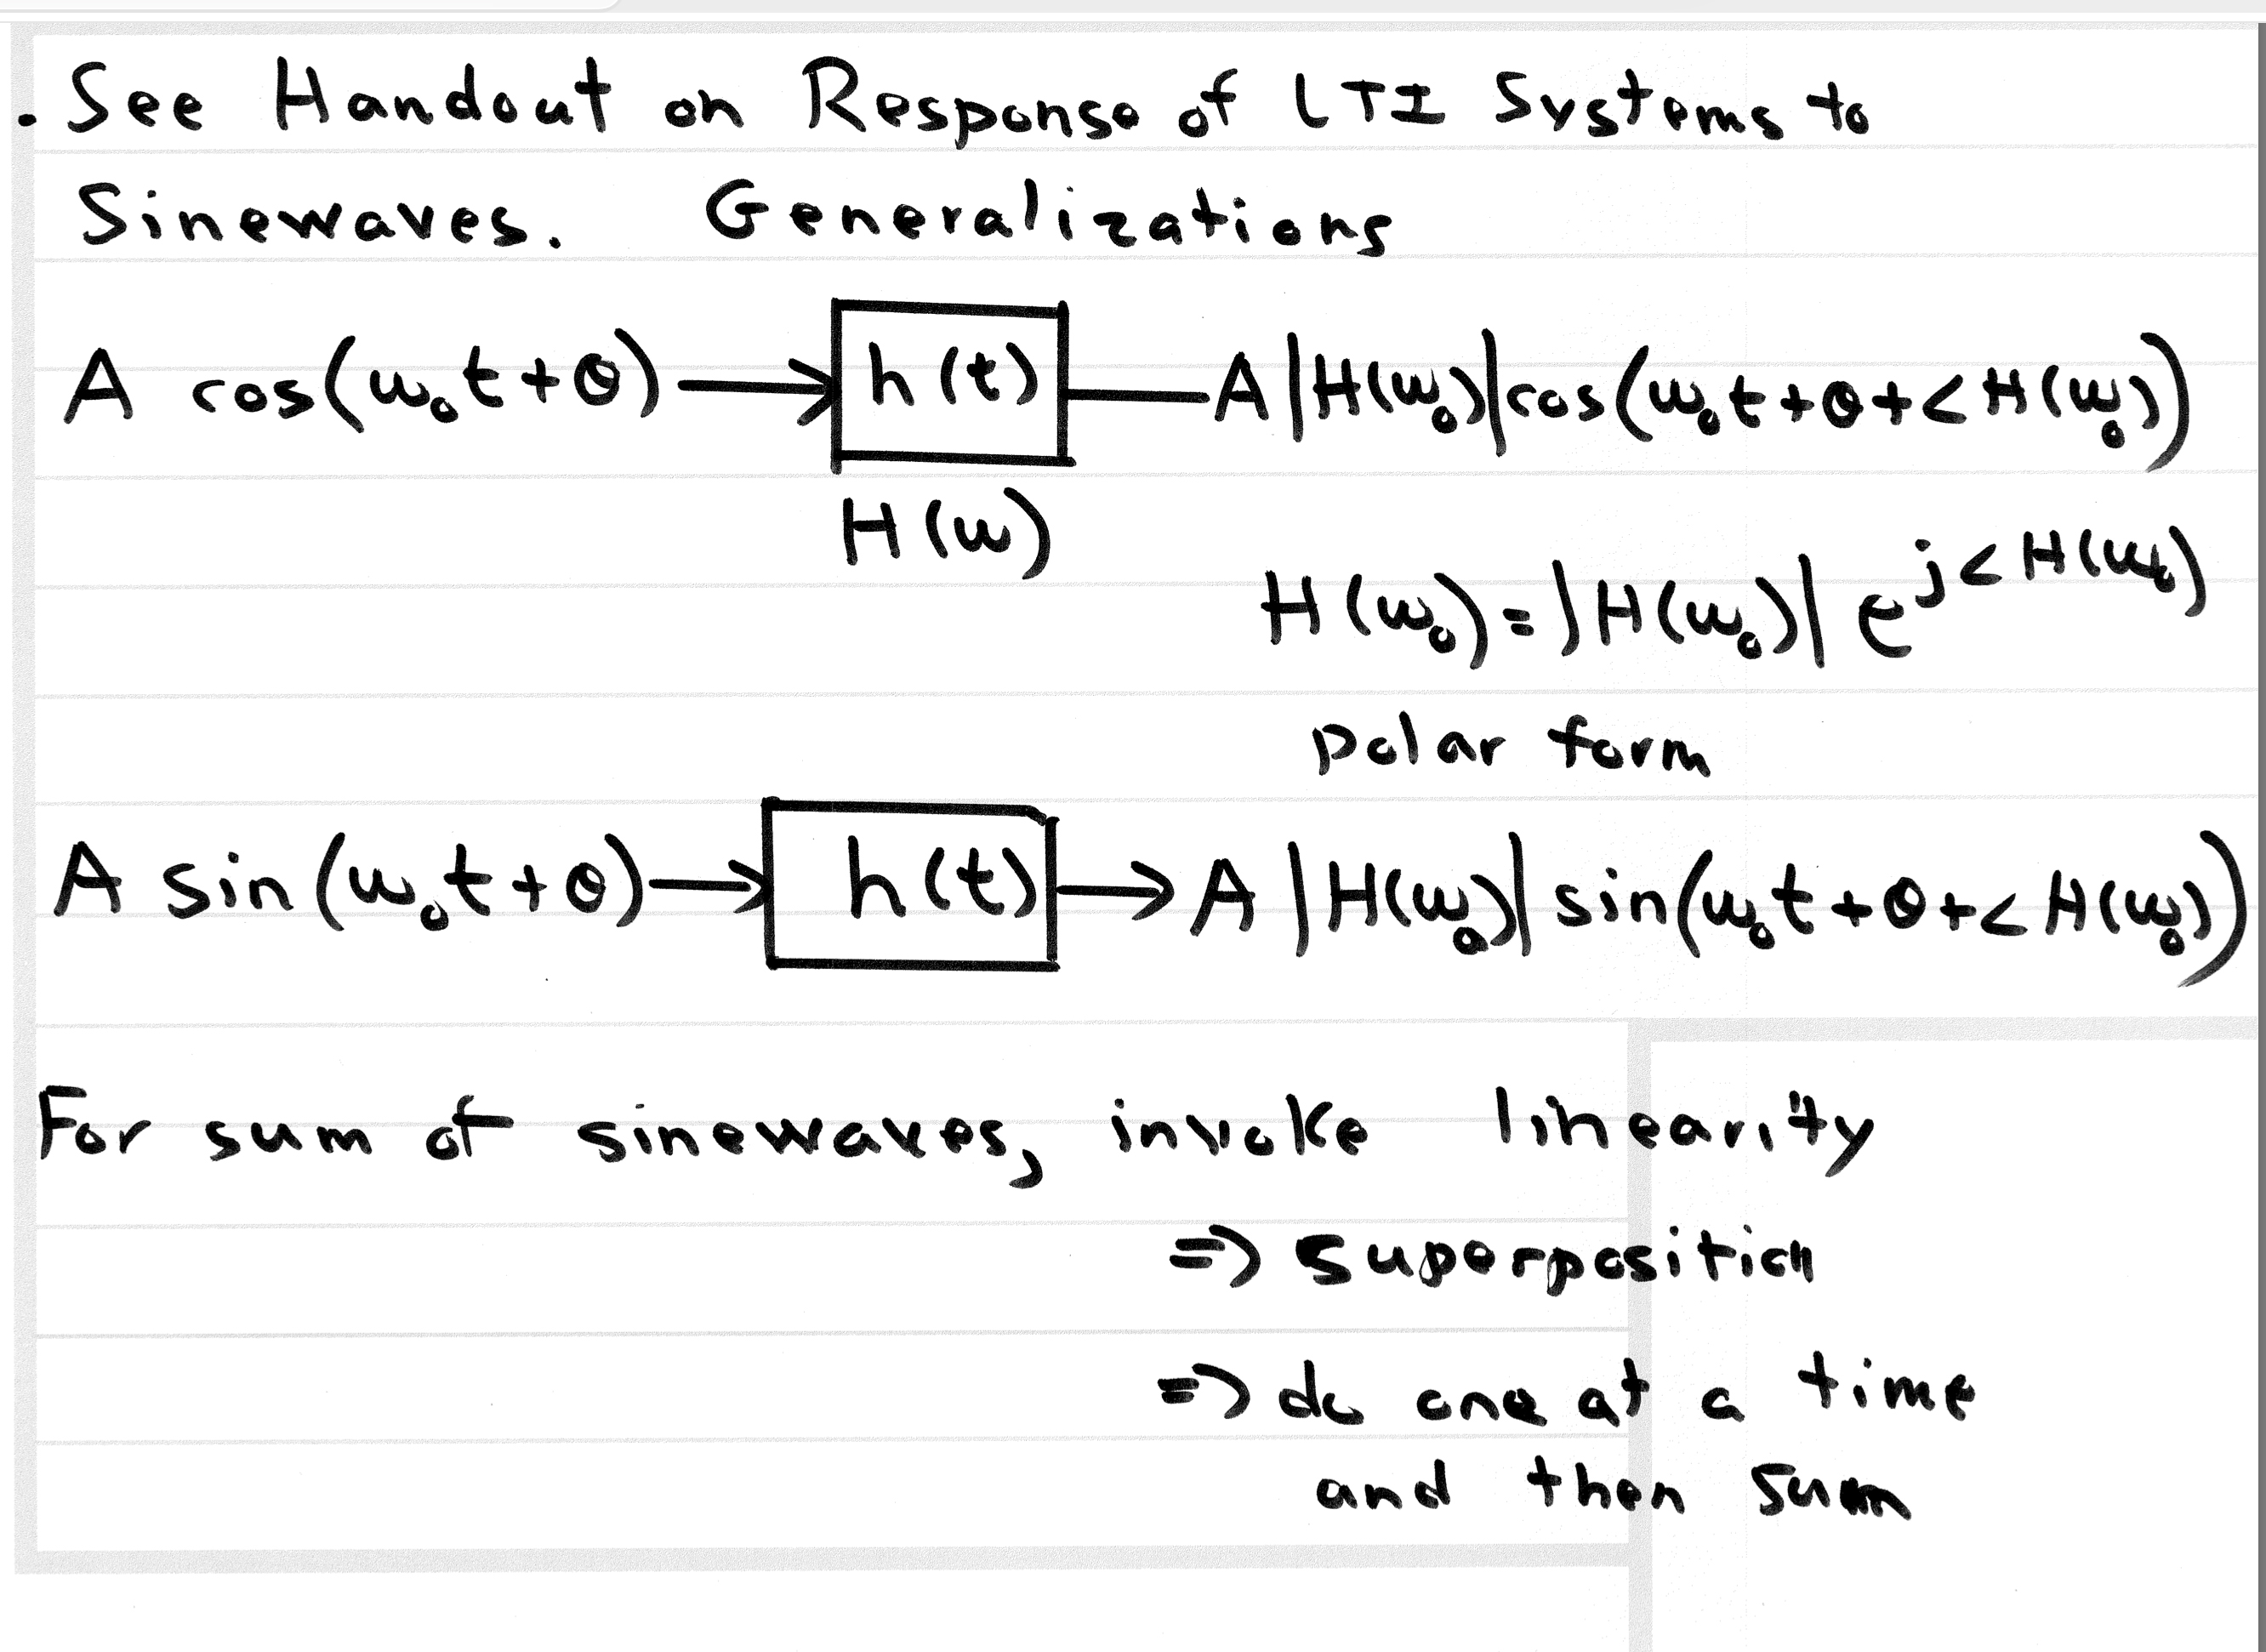 . See Handout on Response of LTI Systems to
Sinewaves. Generalizations
A cos(ω₀t+θ) → h(t) — A|H(ω₀)|cos(ω₀t+θ+<H(ω₀))
H(ω)
H(ω₀)=|H(ω₀)| e^{j<H(ω₀)}
polar form
A sin(ω₀t+θ) → h(t) → A|H(ω₀)| sin(ω₀t+θ+<H(ω₀))
For sum of sinewaves, invoke linearity
=> superposition
=> do one at a time
and then sum